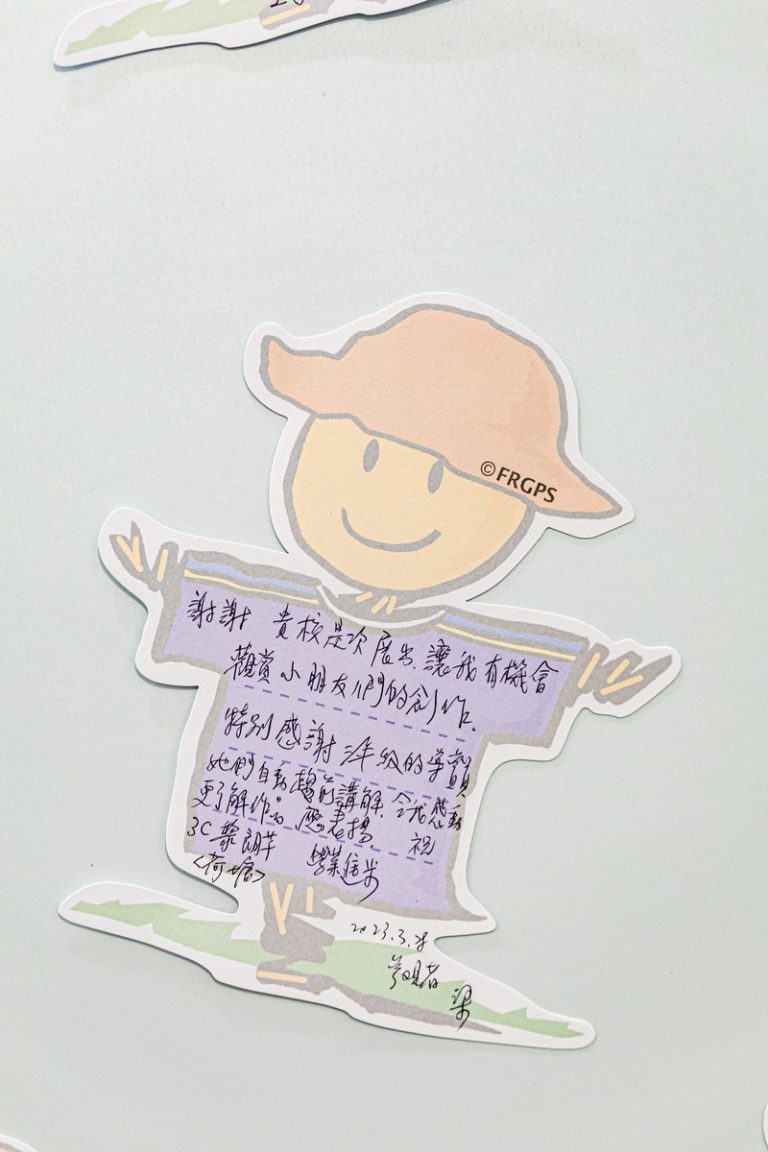 ©FRGPS
謝謝 貴校是次展出,讓我有機會
觀賞小朋友們的創作.
特別感謝 年級的導賞
她們自動趨前講解 令我感動
更了解作品 應表揚. 祝
3C 黎 學業進步
<荷塘>
2023.3.
參觀者 梁